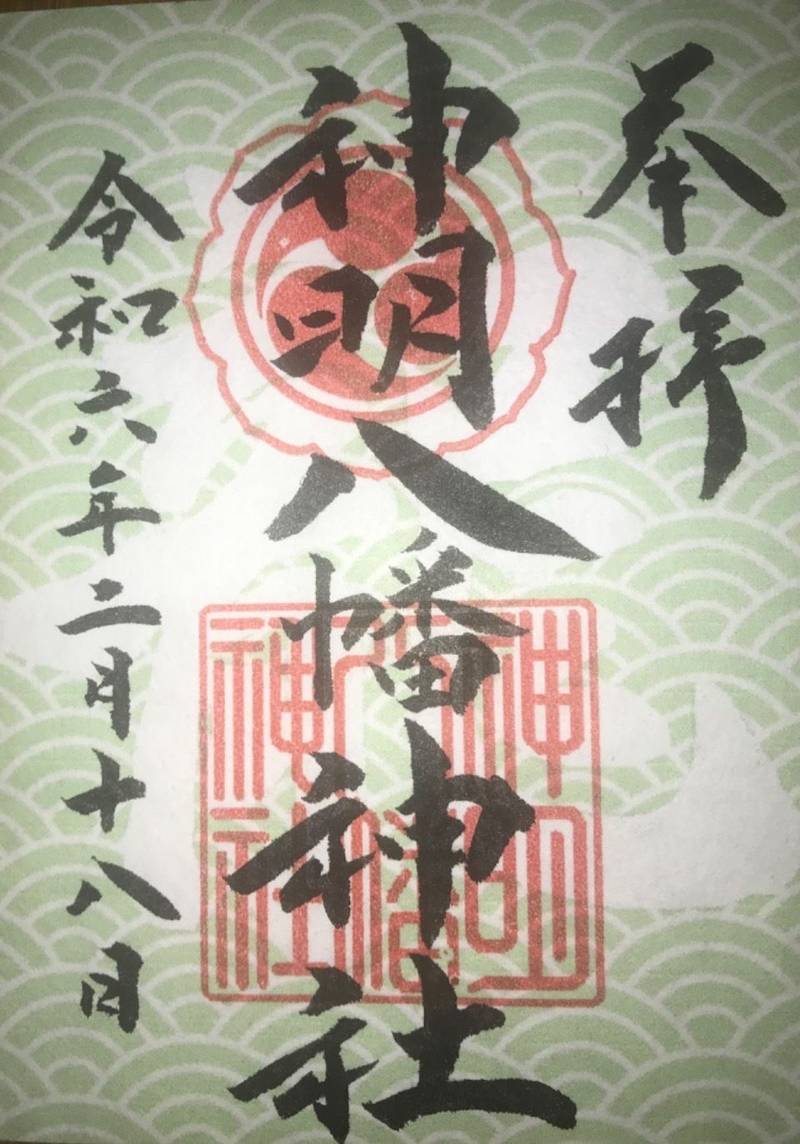 奉拝
神明八幡神社
神明八幡神社
令和六年二月十八日